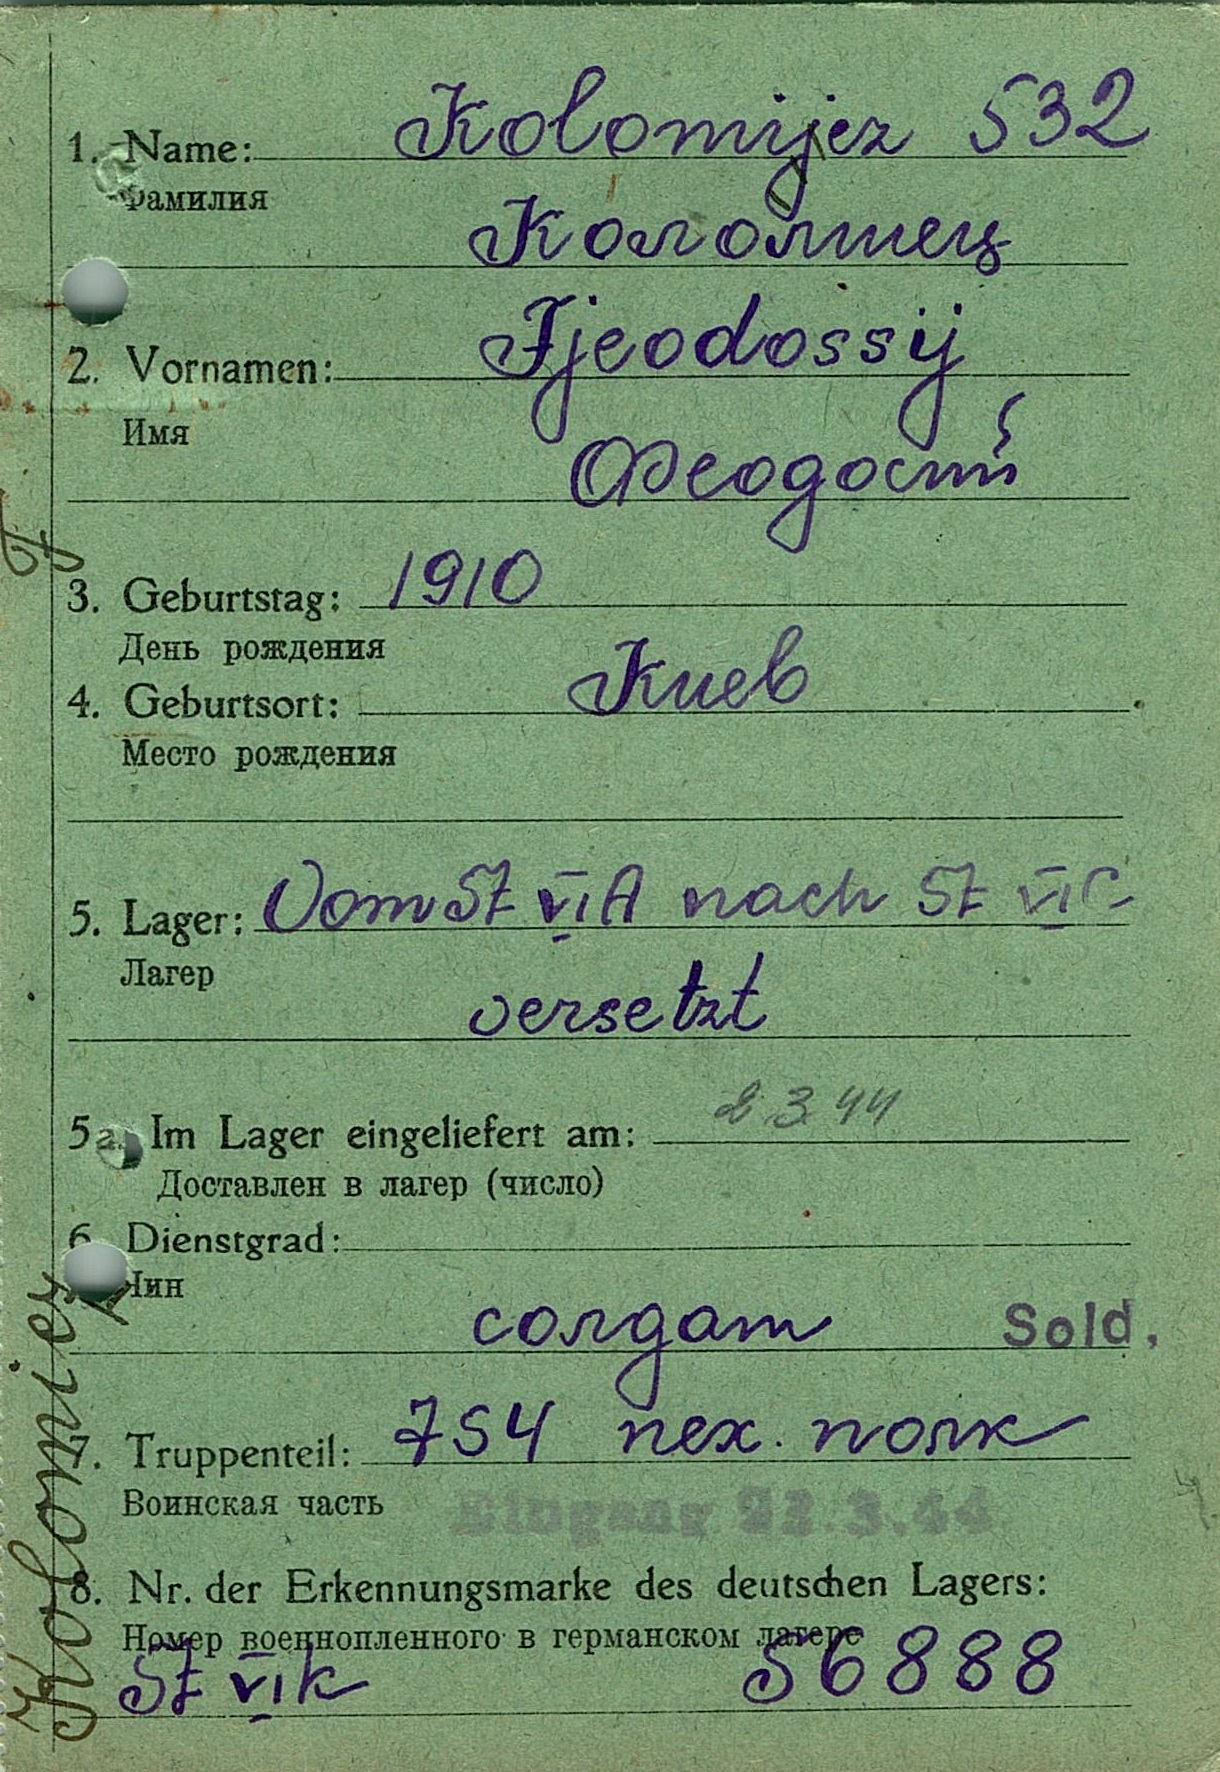 1. Name: Kolomijez 532
Фамилия
Коломиец
2. Vornamen: Fjeodossij
Имя
Феодосий
3. Geburtstag: 1910
День рождения
4. Geburtsort: Киев
Место рождения
5. Lager: Vom St VI A nach St VI C
Лагер
versetzt
5a. Im Lager eingeliefert am: 2 3 44
Доставлен в лагер (число)
6. Dienstgrad:
Чин
солдат Sold.
7. Truppenteil: 754 пех. полк
Воинская часть
Eingang 22.3.44
8. Nr. der Erkennungsmarke des deutschen Lagers:
Номер военнопленного в германском лагере
St VI K 56888
Kolomiez